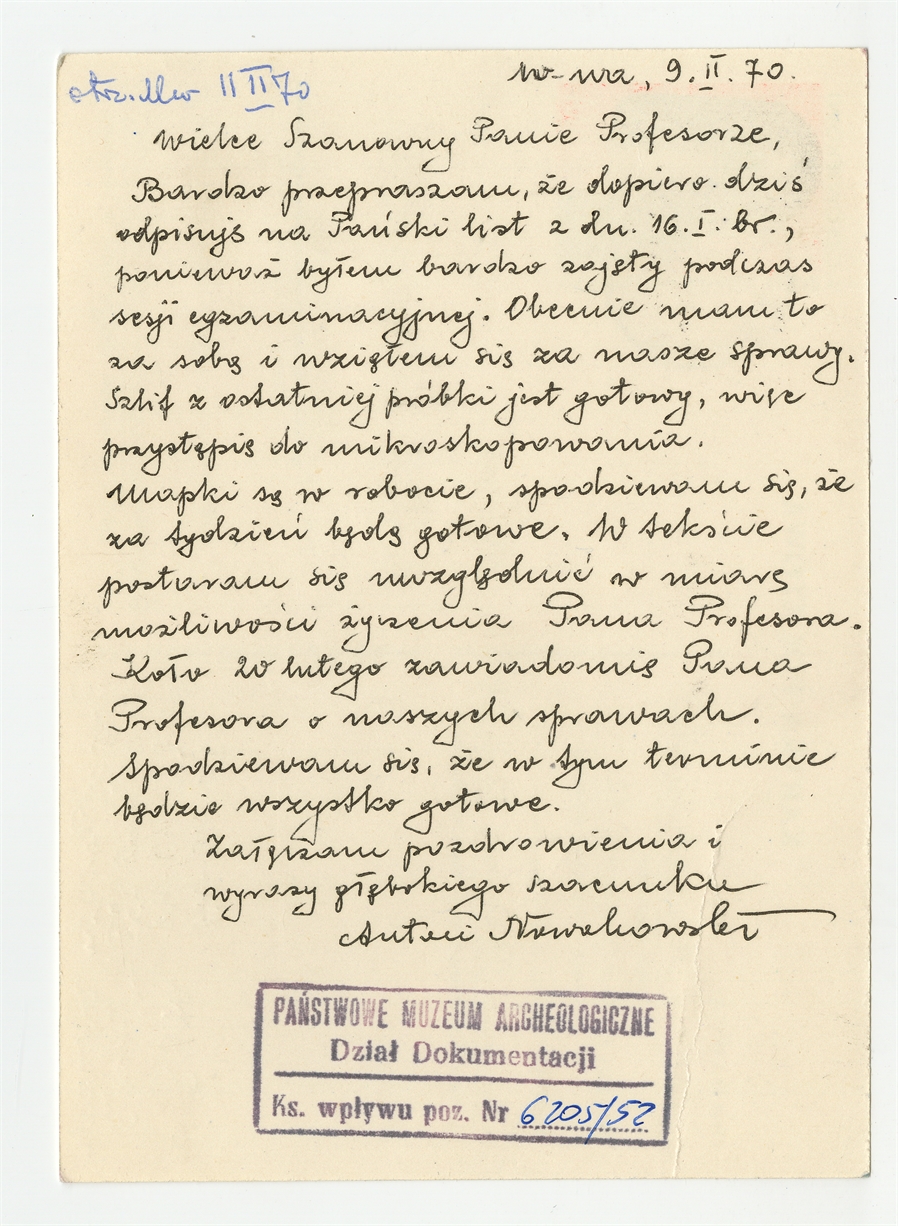 otrz. 11 II 70
W-wa, 9.II.70.
Wielce Szanowny Panie Profesorze,
Bardzo przepraszam, że dopiero dziś
odpisuję na Pański list z dn. 16.I. br.,
ponieważ byłem bardzo zajęty podczas
sesji egzaminacyjnej. Obecnie mam to
za sobą i wziąłem się za nasze sprawy.
Szlif z ostatniej próbki jest gotowy, więc
przystąpię do mikroskopowania.
Mapki są w robocie, spodziewam się, że
za tydzień będą gotowe. W tekście
postaram się uwzględnić w miarę
możliwości życzenia Pana Profesora.
Koło 20 lutego zawiadomię Pana
Profesora o naszych sprawach.
Spodziewam się, że w tym terminie
będzie wszystko gotowe.
Załączam pozdrowienia i
wyrazy głębokiego szacunku
Antoni Nowakowski
PAŃSTWOWE MUZEUM ARCHEOLOGICZNE
Dział Dokumentacji
Ks. wpływu poz. Nr 6205/52